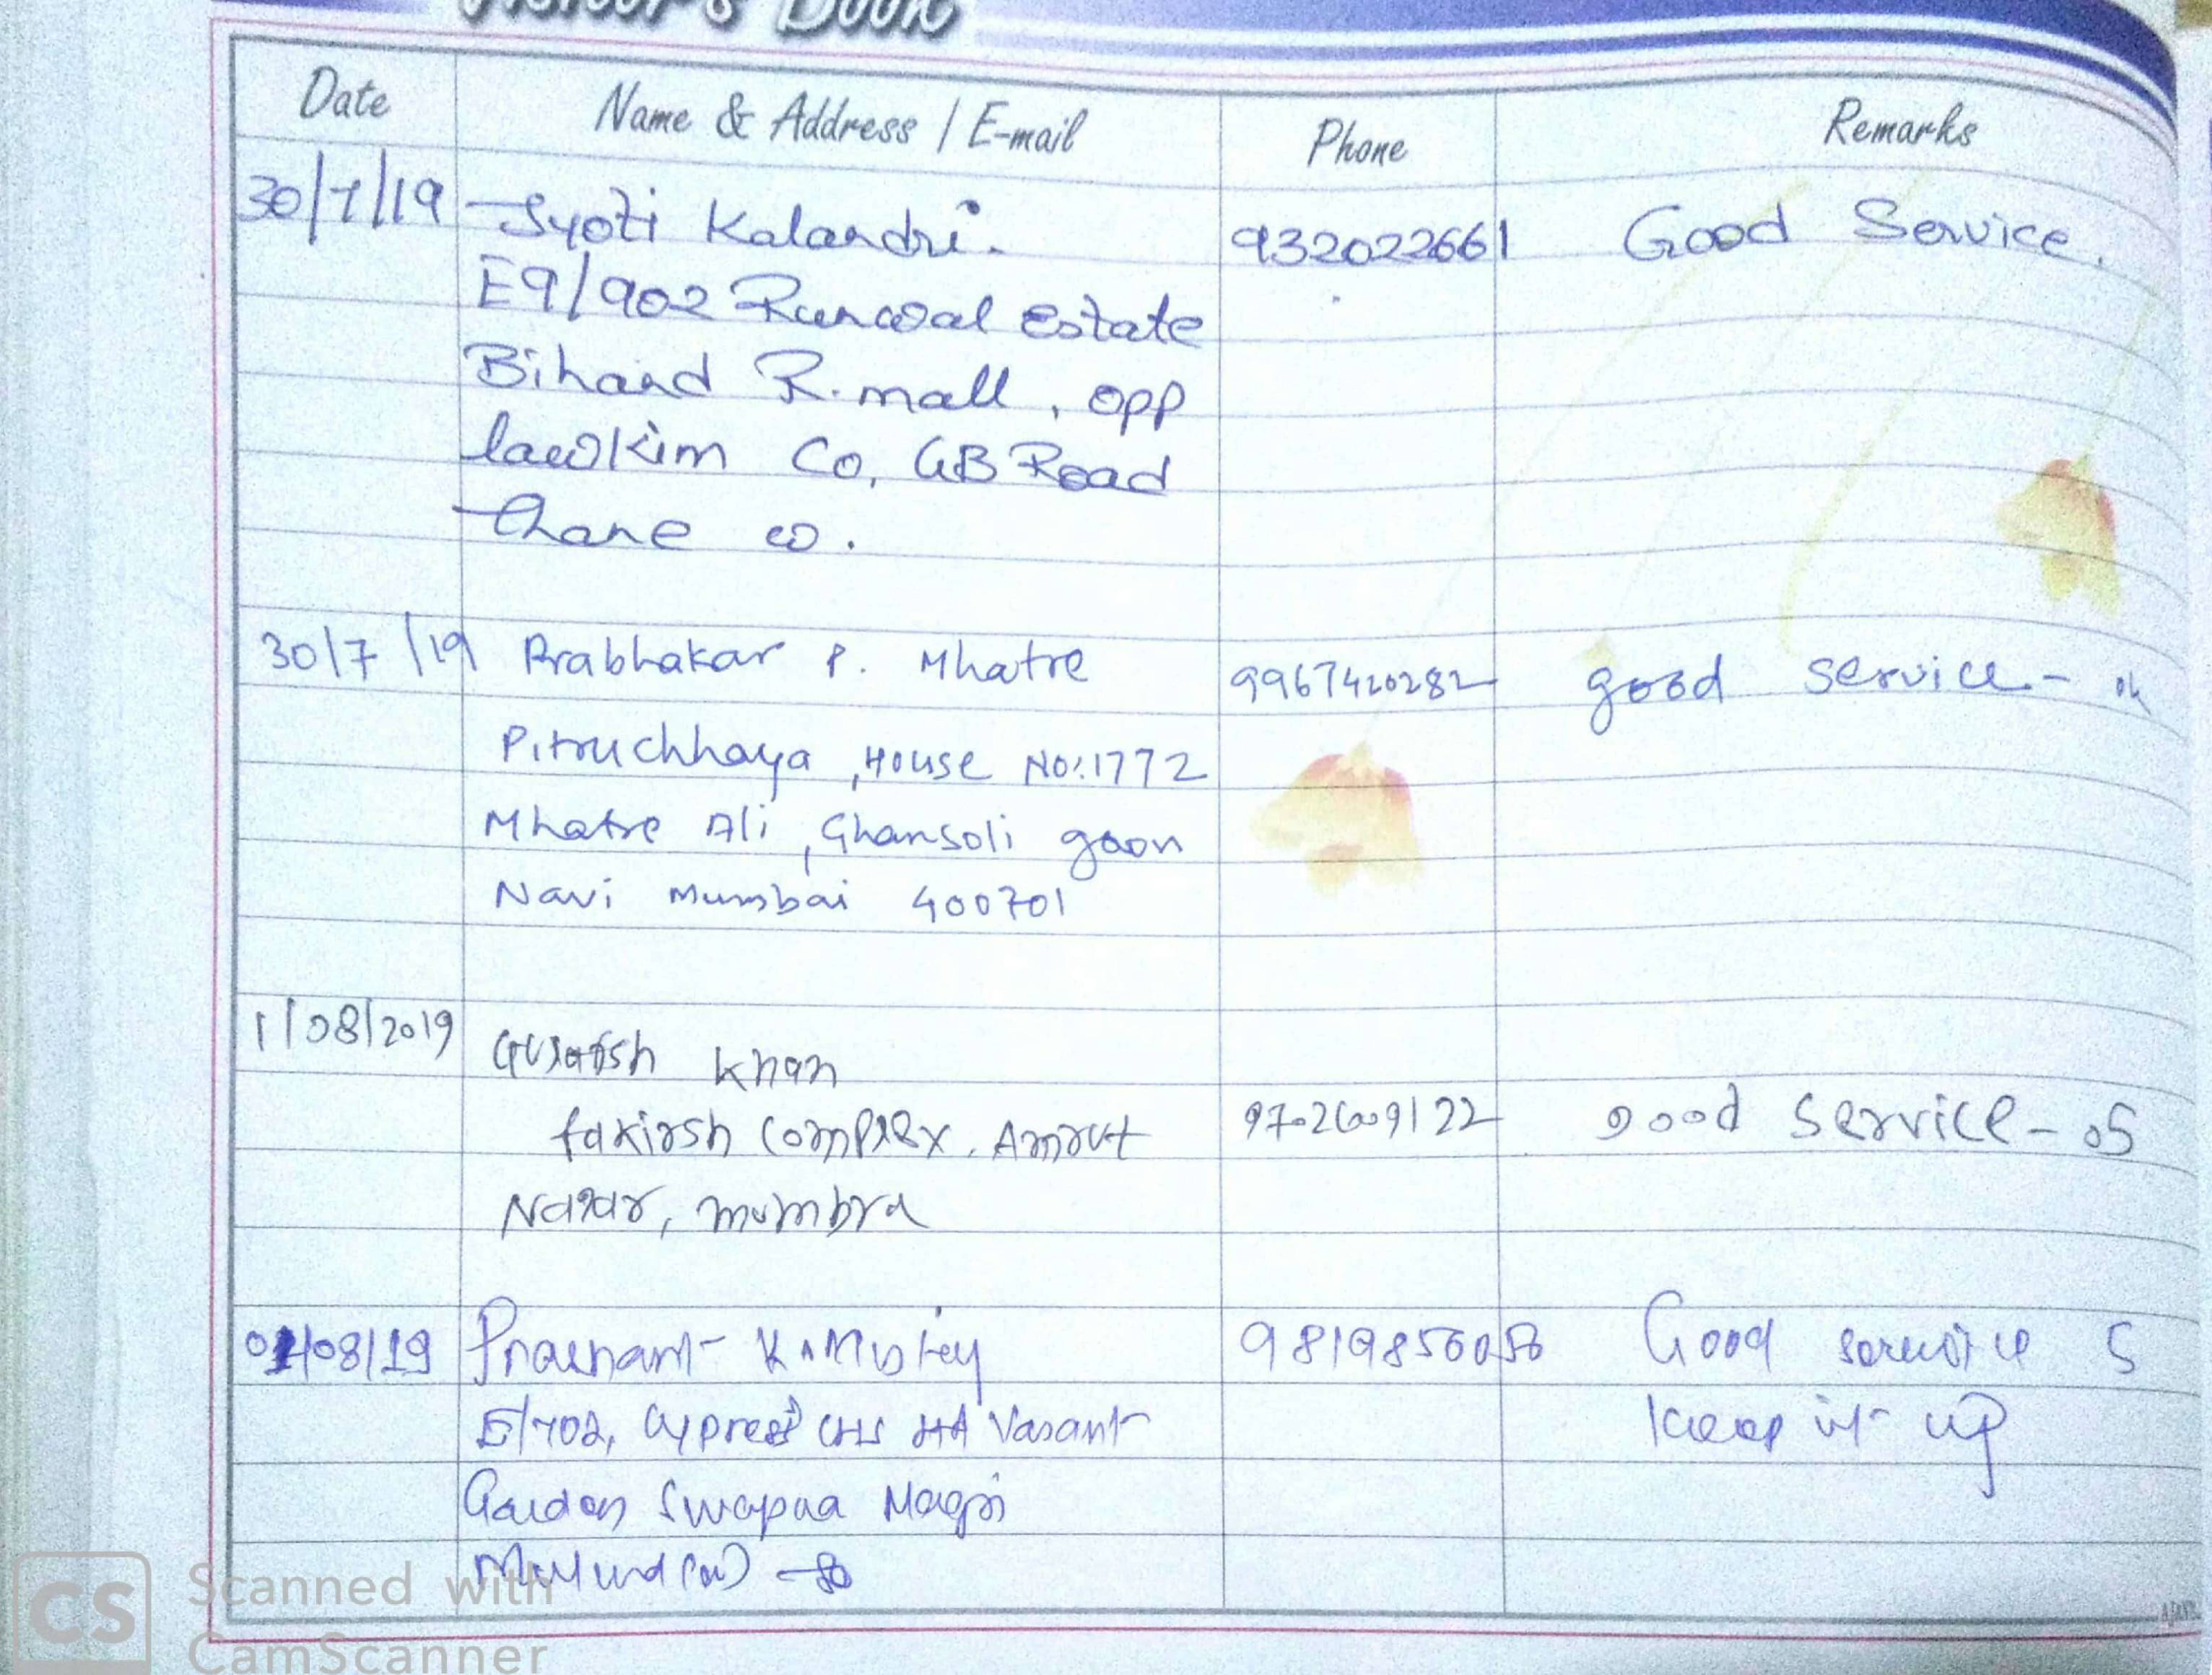 Visitor's Book
Date Name & Address / E-mail Phone Remarks
30/7/19 Jyoti Kalandri. 932022661 Good Service.
E9/902 Runwal Estate
Bihand R. mall, opp
lawkim Co, GB Road
Thane w.
30/7/19 Prabhakar P. Mhatre 9967420282 good service - ok
Pitruchhaya, House No: 1772
Mhatre Ali, Ghansoli gaon
Navi Mumbai 400701
1/08/2019 Khan
fakirsh complex, Amrut 9702609122 good service - 05
Nagar, mumbra
01/08/19 Prashant K. 98198560 Good service 5
E/702, Cypress CHS Vasant keep it up
Garden Swapna Nagri
Mulund (w)
Scanned with
CS
CamScanner